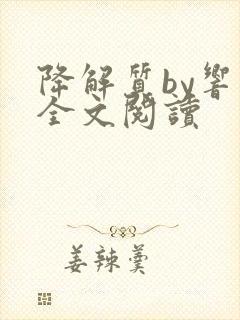 降解質by響
全文閱讀
姜辣羹